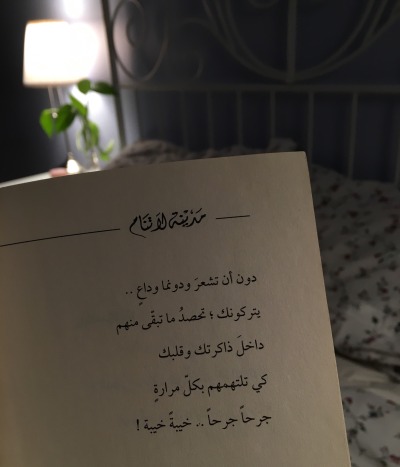 مَدينة لا تنام
دون أن تشعرَ ودونما وداعٍ ..
يتركونك ؛ تحصدُ ما تبقّى منهم
داخلَ ذاكرتك وقلبك
كي تلتهمهم بكلّ مرارةٍ
جرحاً جرحاً .. خيبةً خيبة !